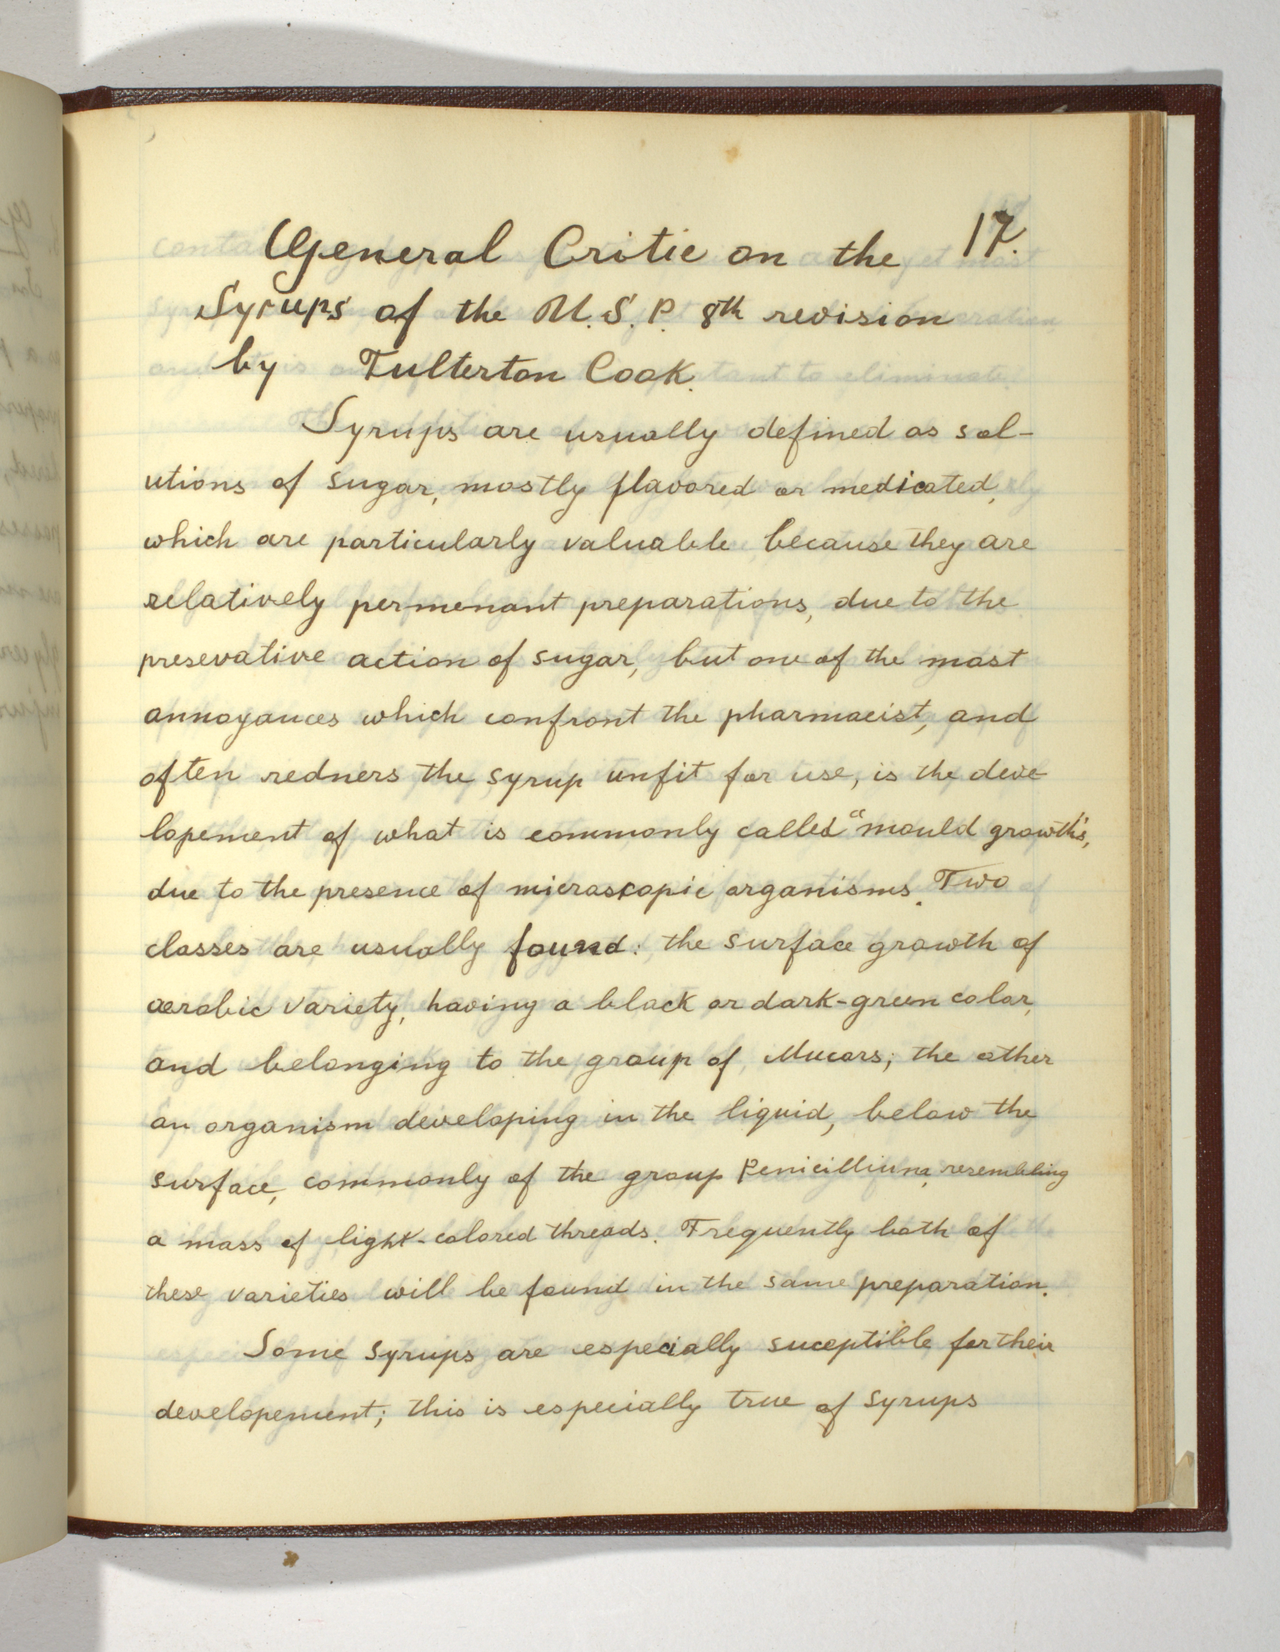 17.
General Critic on the
Syrups of the U.S.P. 8th revision
by Fulterton Cook.
Syrups are usually defined as sol-
utions of sugar, mostly flavored or medicated,
which are particularly valuable because they are
relatively permenant preparations, due to the
presevative action of sugar, but one of the most
annoyances which confront the pharmacist, and
often redners the syrup unfit for use, is the deve-
lopement of what is commonly called "mould growths",
due to the presence of microscopic organisms. Two
classes are usually found: the surface growth of
aerobic variety, having a black or dark-green color,
and belonging to the group of Mucors; the other
an organism developing in the liquid, below the
surface, commonly of the group Penicilliuna, resembling
a mass of light-colored threads. Frequently both of
these varieties will be found in the same preparation.
Some syrups are especially suceptible for their
developement; this is especially true of syrups